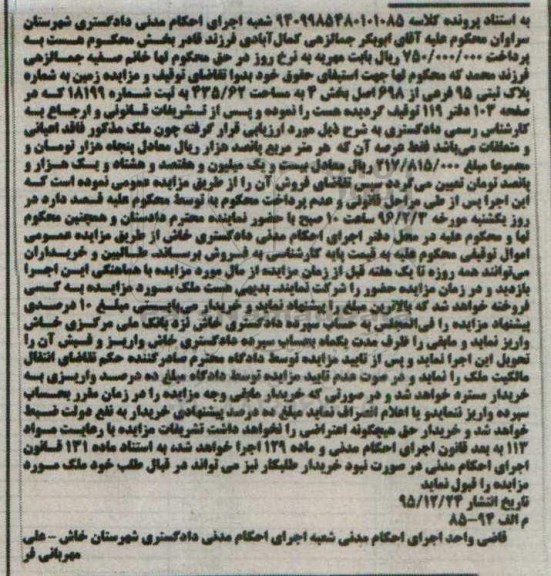 به استناد پرونده کلاسه ۹۴۰۹۹۸۵۴۸۰۱۰۱۰۸۵ شعبه اجرای احکام مدنی دادگستری شهرستان
سراوان محکوم علیه آقای ابوبکر جمالزهی کمال‌آبادی فرزند قادر بخش محکوم هست به
پرداخت ۷۵۰/۰۰۰/۰۰۰ ریال بابت مهریه به نرخ روز در حق محکوم لها خانم صفیه جمالزهی
فرزند محمد که محکوم لها جهت استیفای حقوق خود بدوا تقاضای توقیف و مزایده زمین به شماره
پلاک ثبتی ۹۵ فرعی از ۶۹۸ اصل بخش ۴ به مساحت ۴۳۵/۶۲ به ثبت شماره ۱۸۱۹۹ که در
صفحه ۱۰۳ دفتر ۱۱۹ توقیف گردیده هست را نموده و پس از تشریفات قانونی و ارجاع به
کارشناس رسمی دادگستری به شرح ذیل مورد ارزیابی قرار گرفته چون ملک مذکور فاقد اعیانی
و متعلقات می‌باشد فقط عرصه آن که هر متر مربع پانصد هزار ریال معادل پنجاه هزار تومان و
مجموعا مبلغ ۲۱۷/۸۱۵/۰۰۰ ریال معادل بیست و یک میلیون و هفتصد و هشتاد و یک هزار و
پانصد تومان تعیین می‌گردد سپس تقاضای فروش آن را از طریق مزایده عمومی نموده است که
این اجرا پس از طی مراحل قانونی و عدم پرداخت محکوم به توسط محکوم علیه قصد دارد در
روز یکشنبه مورخه ۹۶/۲/۳ ساعت ۱۰ صبح با حضور نماینده محترم دادستان و همچنین محکوم
لها و محکوم علیه در محل دفتر اجرای احکام مدنی دادگستری خاش از طریق مزایده عمومی
اموال توقیفی محکوم علیه به قیمت پایه کارشناسی به فروش برساند. طالبین و خریداران
می‌توانند همه روزه تا یک هفته قبل از زمان مزایده از مال مورد مزایده با هماهنگی این اجرا
بازدید و در زمان مزایده حضور را شرکت نمایند. بدیهی هست ملک مورد مزایده به کسی
فروخته خواهد شد که بالاترین مبلغ را پیشنهاد نماید و خریدار می‌بایستی مبلغ ۱۰ درصدی
پیشنهاد مزایده را فی‌المجلس به حساب سپرده دادگستری خاش نزد بانک ملی مرکزی خاش
واریز نماید و مابقی را ظرف مدت یکماه بحساب سپرده دادگستری خاش واریز و فیش آن را
تحویل این اجرا نماید و پس از تایید مزایده توسط دادگاه محترم صادرکننده حکم تقاضای انتقال
مالکیت ملک را نماید و در صوت عدم تایید مزایده توسط دادگاه مبلغ ده درصد واریزی به
خریدار مسترد خواهد شد و در صورتی که خریدار مابقی وجه مزایده را در زمان مقرر بحساب
سپرده واریز ننمایدو یا اعلام انصراف نماید مبلغ ده درصد پیشنهادی خریدار به نفع دولت ضبط
خواهد شد و خریدار حق هیچگونه اعتراضی را نخواهد داشت تشریفات مزایده با رعایت مواد
۱۱۳ به بعد قانون اجرای احکام مدنی و ماده ۱۲۹ اجرا خواهد شد، به استناد ماده ۱۳۱ قانون
اجرای احکام مدنی در صورت نبود خریدار طلبکار نیز می تواند در قبال طلب خود ملک مورد
مزایده را قبول نماید
تاریخ انتشار ۹۵/۱۲/۲۴
م الف ۹۴-۸۵
قاضی واحد اجرای احکام مدنی شعبه اجرای احکام مدنی دادگستری شهرستان خاش - علی
مهربانی فر